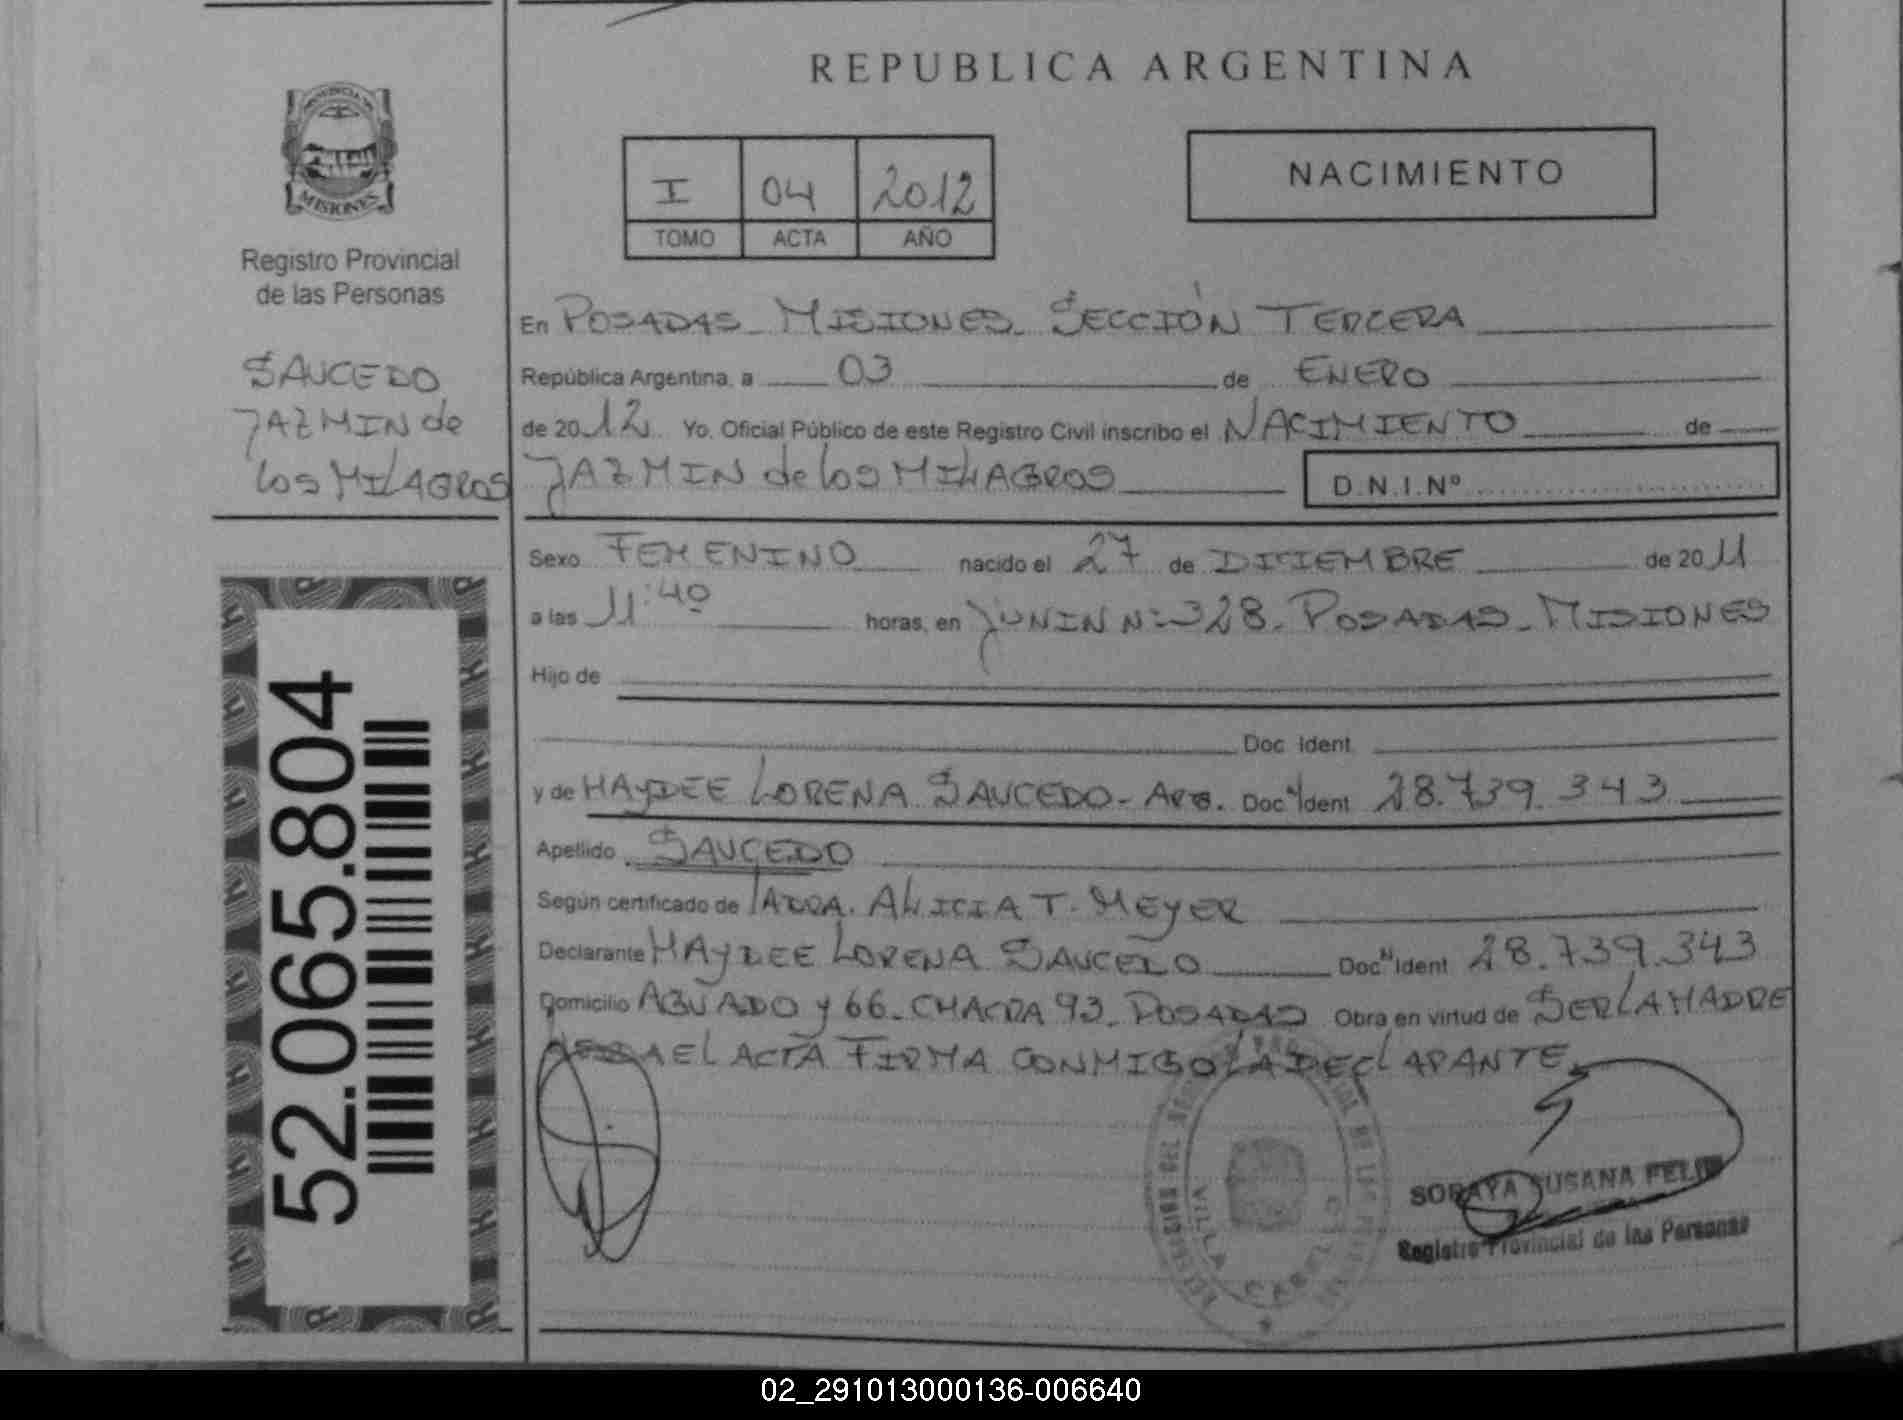 REPUBLICA ARGENTINA
PROVINCIA DE
MISIONES
Registro Provincial
de las Personas
SAUCEDO
JAZMIN de
los MILAGROS
52.065.804
I 04 2012
TOMO ACTA AÑO
NACIMIENTO
En POSADAS - MISIONES - SECCIÓN TERCERA
República Argentina, a 03 de ENERO
de 2012 Yo, Oficial Público de este Registro Civil inscribo el NACIMIENTO de
JAZMIN de los MILAGROS D.N.I.Nº
Sexo FEMENINO nacido el 27 de DICIEMBRE de 2011
a las 11:40 horas, en JUNIN Nº 328 - POSADAS - MISIONES
Hijo de
Doc. Ident.
y de HAYDEE LORENA SAUCEDO - ARG. Doc. Ident. 28.739.343
Apellido SAUCEDO
Según certificado de LA DRA. ALICIA T. MEYER
Declarante HAYDEE LORENA SAUCEDO Doc. Ident. 28.739.343
Domicilio AGUADO y 66 - CHACRA 93 - POSADAS Obra en virtud de SER LA MADRE
EL ACTA FIRMA CONMIGO LA DECLARANTE
VILLA CABELLO
SORAYA SUSANA
Registro Provincial de las Personas
02_291013000136-006640